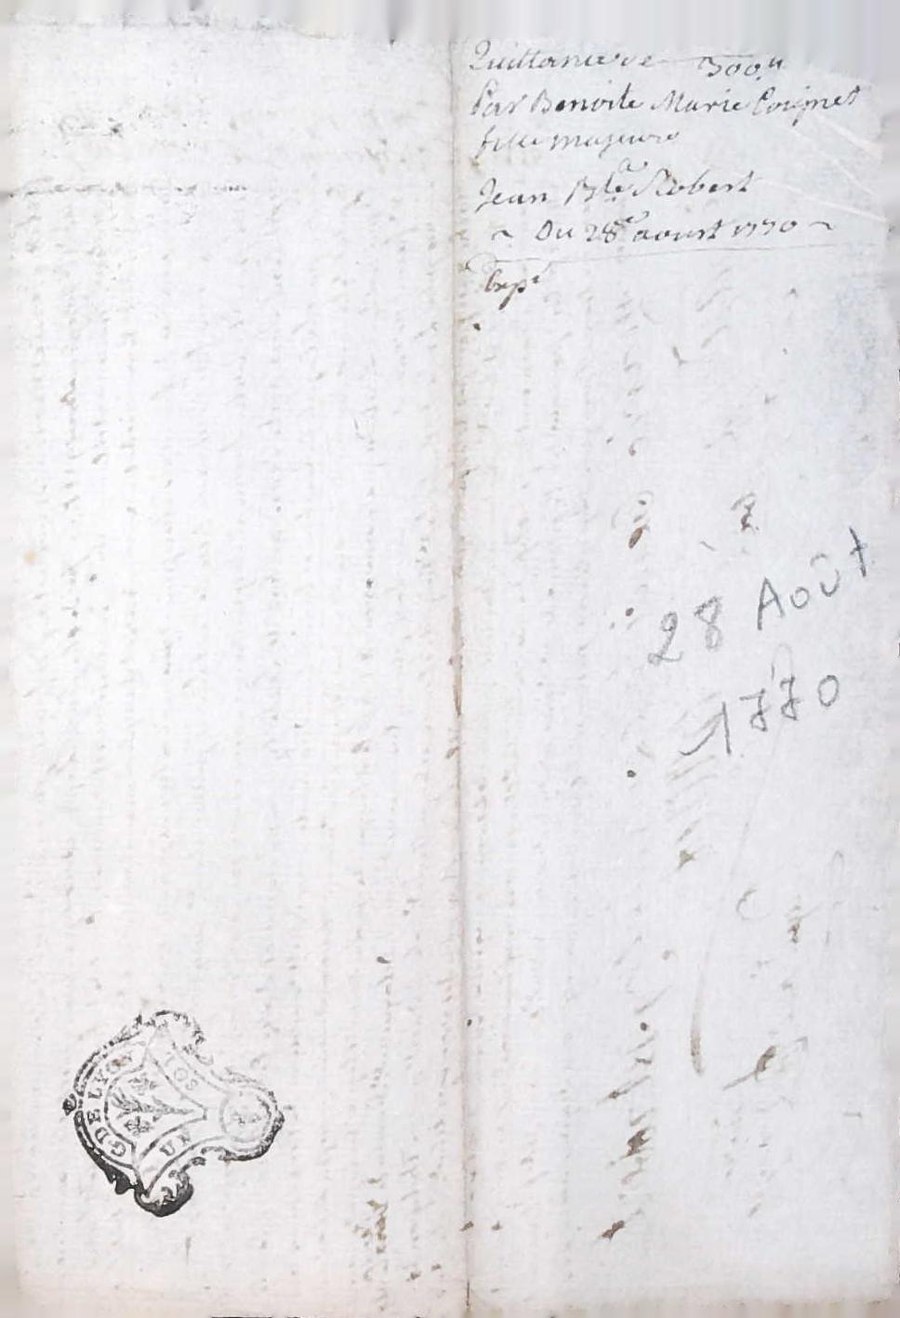 Quittance de 300ᵗᵗ
Par Benoite Marie Coignet
fille majeure
a
Jean Bte Robert
~ Du 28e aoust 1770 ~
Expe
28 Août
1770
G DE LYON
UN
SOL